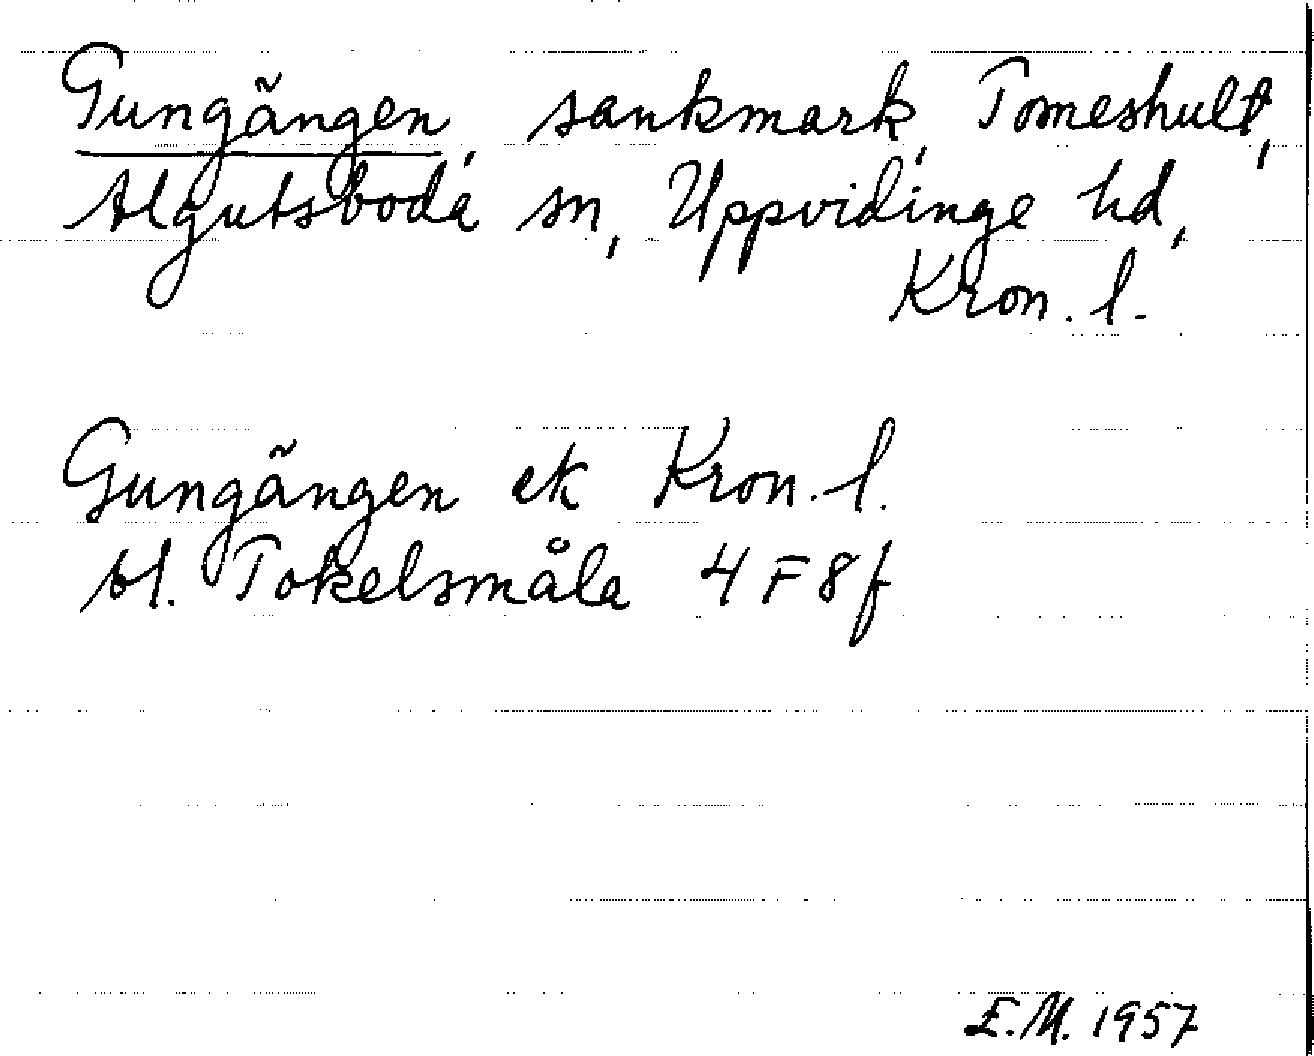 Gungängen, sankmark, Tomeshult,
Algutsboda sn, Uppvidinge hd,
Kron. l.
Gungängen ek Kron. l.
bl. Tokelsmåla 4F8f
E.M. 1957